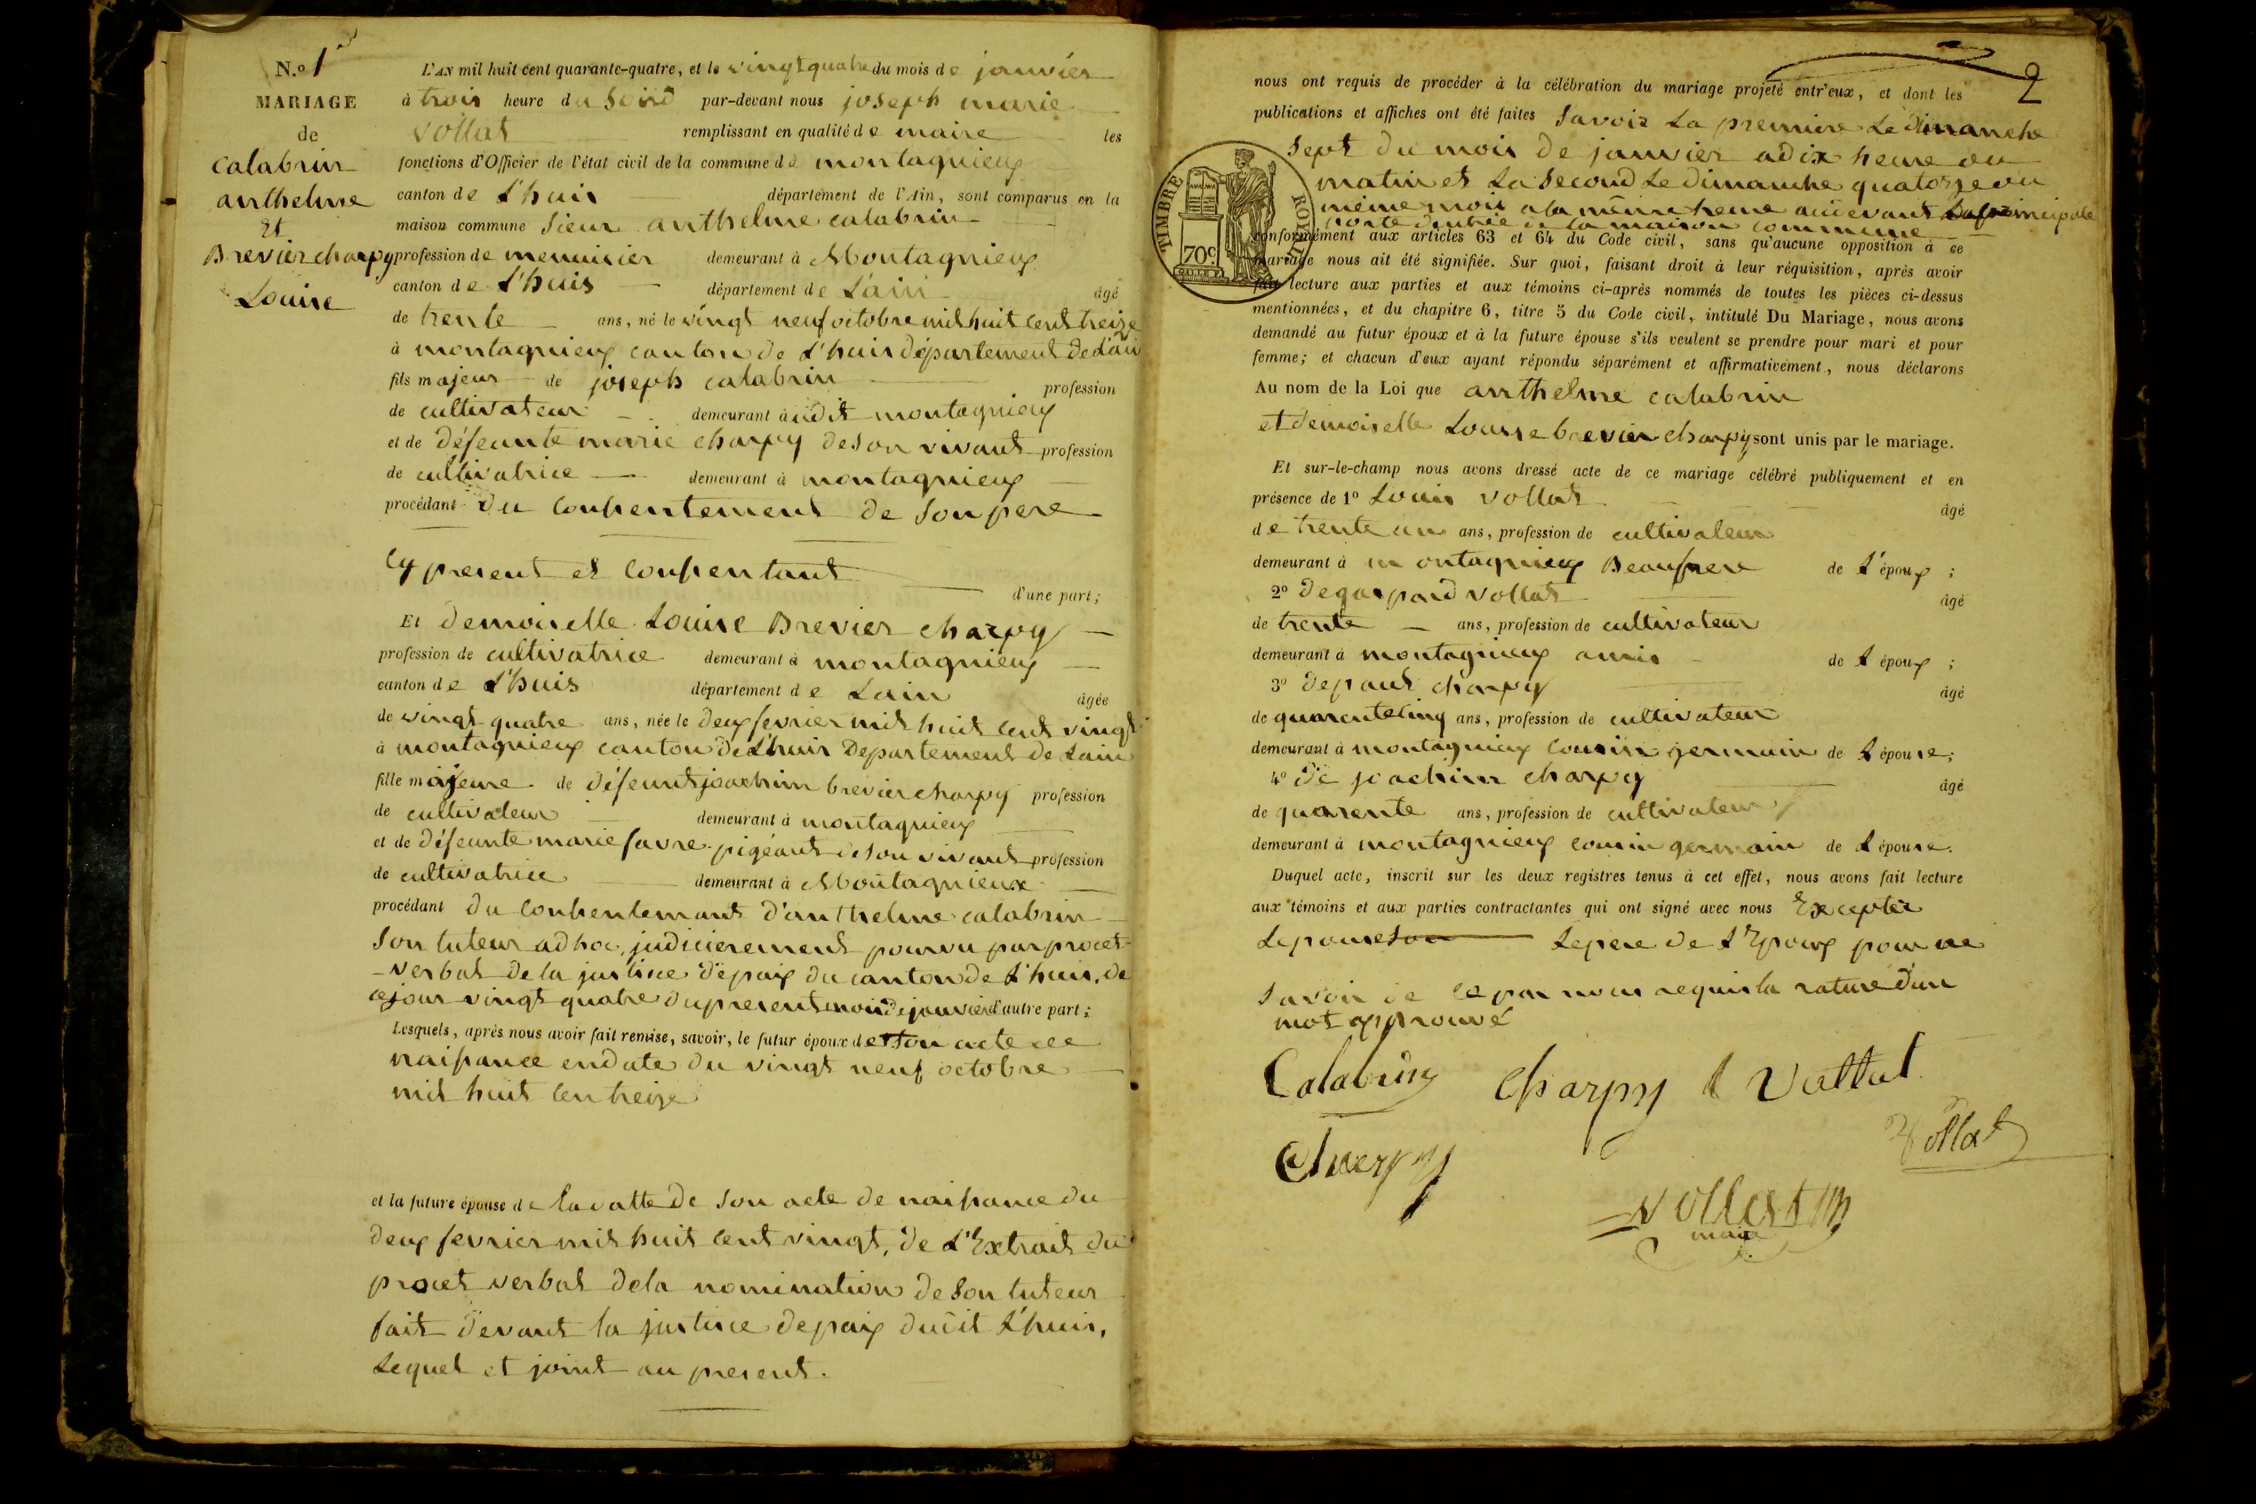 N.o 1er
MARIAGE
de
calabrin
anthelme
et
Brevier charpy
Louise
L'AN mil huit cent quarante-quatre, et le vingt quatre du mois de janvier
à trois heure du soird par-devant nous joseph marie
vollat remplissant en qualité de maire les
fonctions d'Officier de l'état civil de la commune de montagnieux
canton de L'huis département de l'Ain, sont comparus en la
maison commune sieur anthelme calabrin
profession de menuisier demeurant à Montagnieux
canton de L'huis département de L'ain âgé
de trente ans, né le vingt neuf octobre mil huit cent treize
à montagnieux canton de L'huis département de L'ain
fils majeur de joseph calabrin profession
de cultivateur demeurant à udit montagnieux
et de défeunte marie charpy de son vivant profession
de cultivatrice demeurant à montagnieux
procédant du consentement de son pere
cy present et consentant
d'une part;
Et demoiselle Louise Brevier charpy
profession de cultivatrice demeurant à montagnieux
canton de L'huis département de Lain âgée
de vingt quatre ans, née le deux fevrier mil huit cent vingt
à montagnieux canton de L'huis Departement de Lain
fille majeure de défeunt joachim brevier charpy profession
de cultivateur demeurant à montagnieux
et de défeunte marie favre pigéant de son vivant profession
de cultivatrice demeurant à Montagnieux
procédant du consentemant d'anthelme calabrin
son tuteur adhoc, judicierement pourvu par procet
-verbal de la justice de paix du canton de L'huis, de
cejour vingt quatre du present mois de janvier d'autre part;
Lesquels, après nous avoir fait remise, savoir, le futur époux de son acte de
naissance en date du vingt neuf octobre
mil huit cen treize
et la future épouse de la datte de son acte de naissance du
deux fevrier mil huit cent vingt, de L'Extrait du
procet verbal de la nomination de son tuteur
fait devant la justice de paix dudit L'huis,
Lequel et joint au present.
2
nous ont requis de procéder à la célébration du mariage projeté entr'eux, et dont les
publications et affiches ont été faites savoir La premiere Le dimanche
sept du mois de janvier a dix heure du
matin et La second Le dimanche quatorze du
même mois a la même heure au devant La principale
porte d'entrée de la maison commune
TIMBRE ROYAL
70c
conformément aux articles 63 et 64 du Code civil, sans qu'aucune opposition à ce
mariage nous ait été signifiée. Sur quoi, faisant droit à leur réquisition, après avoir
fait lecture aux parties et aux témoins ci-après nommés de toutes les pièces ci-dessus
mentionnées, et du chapitre 6, titre 5 du Code civil, intitulé Du Mariage, nous avons
demandé au futur époux et à la future épouse s'ils veulent se prendre pour mari et pour
femme; et chacun d'eux ayant répondu séparément et affirmativement, nous déclarons
Au nom de la Loi que anthelme calabrin
et demoiselle Louise brevier charpy sont unis par le mariage.
Et sur-le-champ nous avons dressé acte de ce mariage célébré publiquement et en
présence de 1o Louis vollat âgé
de trente un ans, profession de cultivateur
demeurant à montagnieux Beaufrere de L'époux;
2o de gaspard vollat âgé
de trente ans, profession de cultivateur
demeurant à montagnieux amis de L époux;
3o de paul charpy âgé
de quarentecinq ans, profession de cultivateur
demeurant à montagnieux cousin germain de L épouse;
4o de joachim charpy âgé
de quarente ans, profession de cultivateur
demeurant à montagnieux cousin germain de L épouse.
Duquel acte, inscrit sur les deux registres tenus à cet effet, nous avons fait lecture
aux témoins et aux parties contractantes qui ont signé avec nous Excepter
Lepouse son Le pere de L'Epoux pour ne
savoir de ce par nous requis la rature d'un
mot approuvé
Calabrin charpy L Vollat
charpy Vollat
vollat
maire